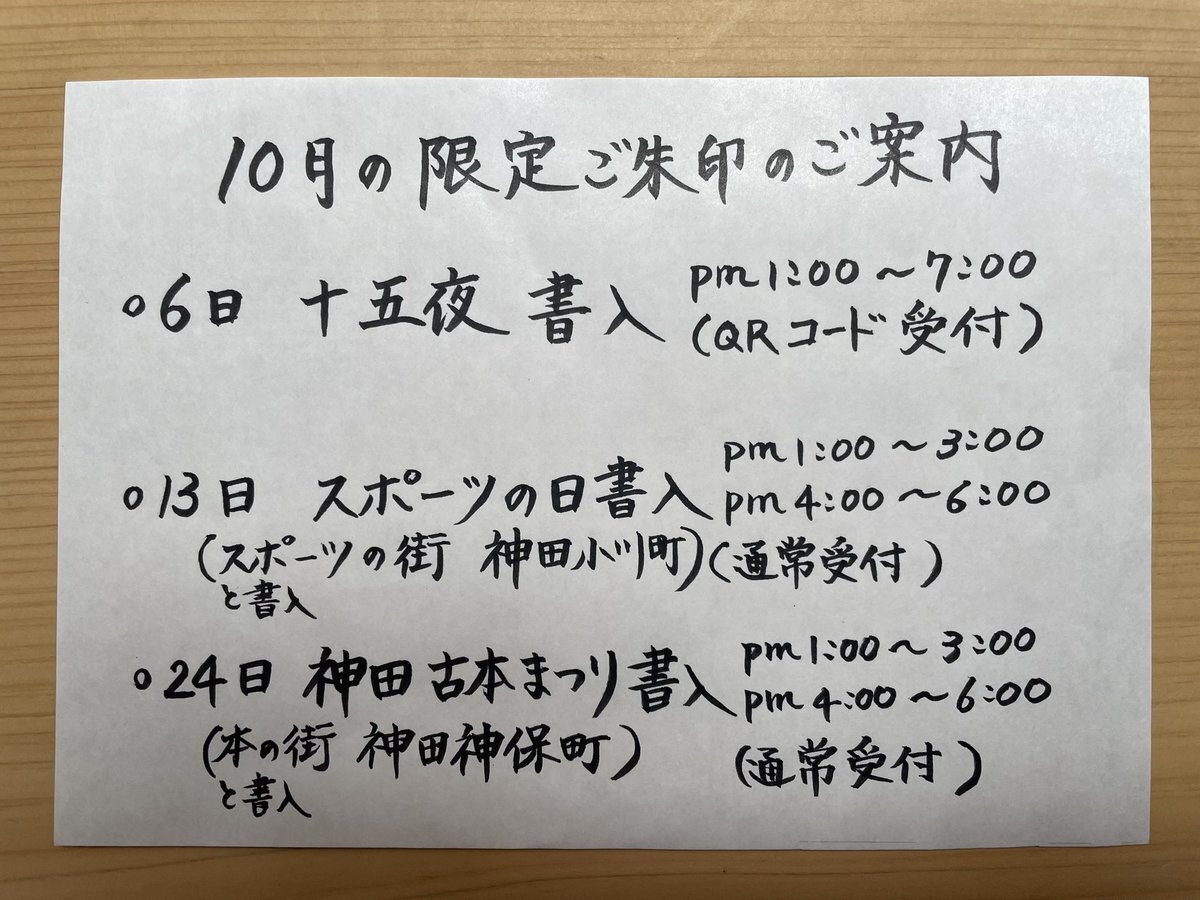 10月の限定ご朱印のご案内
○6日 十五夜 書入 pm1:00～7:00
(QRコード受付)
pm1:00～3:00
○13日 スポーツの日書入 pm4:00～6:00
(スポーツの街 神田小川町)(通常受付)
と書入
pm1:00～3:00
○24日 神田古本まつり書入 pm4:00～6:00
(本の街 神田神保町) (通常受付)
と書入